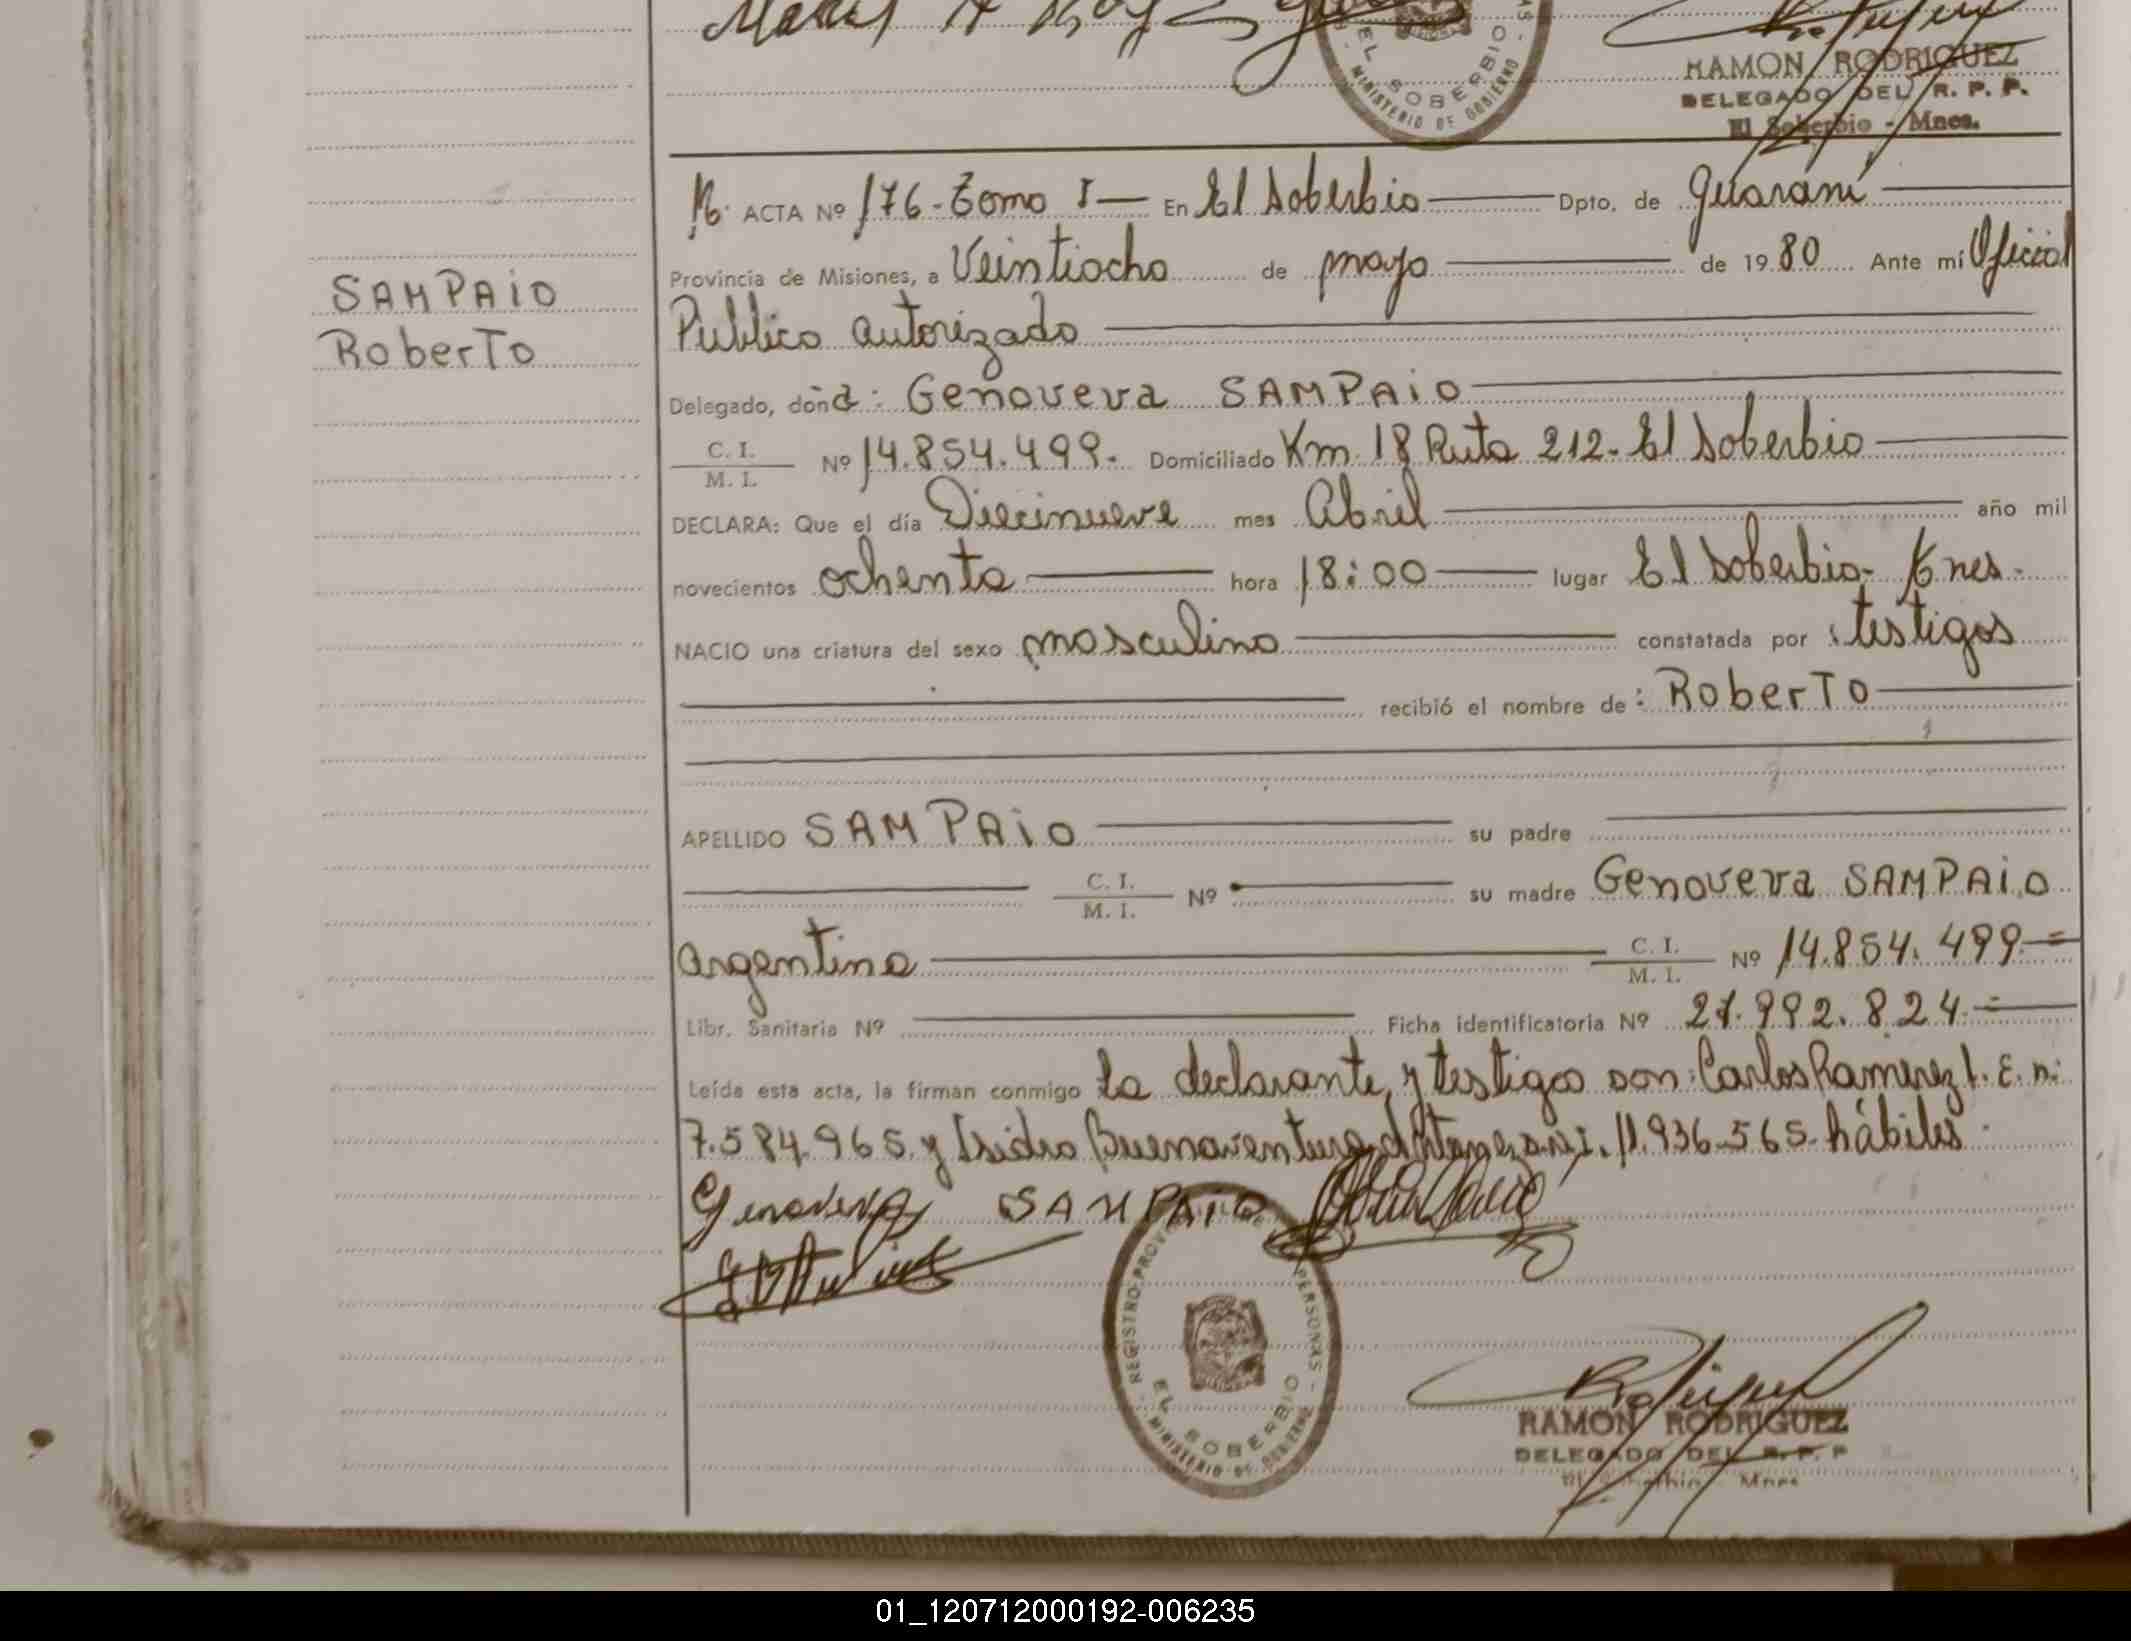 RAMON RODRIGUEZ
DELEGADO DEL R. P. P.
El Soberbio - Mnes.
EL SOBERBIO
MINISTERIO DE GOBIERNO
ACTA Nº 176 - Tomo I — En El Soberbio — Dpto. de Guaraní
Provincia de Misiones, a Veintiocho de mayo de 1980 Ante mí Oficial
Publico autorizado
SAMPAiO
RoberTo
Delegado, doña: Genoveva SAMPAiO
C. I. / M. I. Nº 14.854.499. Domiciliado Km. 18 Ruta 212 - El Soberbio
DECLARA: Que el día Diecinueve mes Abril año mil
novecientos ochenta hora 18:00 lugar El Soberbio - Mnes -
NACIO una criatura del sexo masculino constatada por : testigos
recibió el nombre de : RoberTo
APELLIDO SAMPAiO su padre
C. I. / M. I. Nº su madre Genoveva SAMPAiO
argentina C. I. / M. I. Nº 14.854.499
Libr. Sanitaria Nº Ficha identificatoria Nº 27.992.824
Leída esta acta, la firman conmigo La declarante y testigos don: Carlos Ramirez L. E. n:
7.584.965 y Isidro Buenaventura 11.936.565 hábiles
Genoveva SAMPAiO
REGISTRO PROVINCIAL DE LAS PERSONAS
EL SOBERBIO
MINISTERIO DE GOBIERNO
RAMON RODRIGUEZ
DELEGADO DEL R. P. P
El Soberbio Mnes
01_120712000192-006235